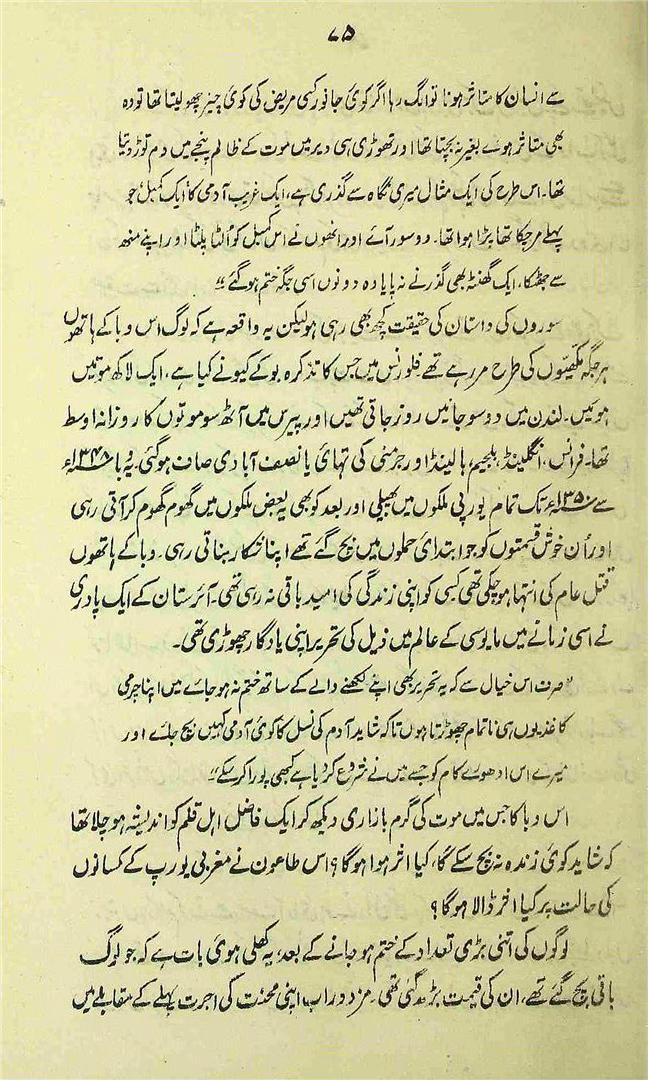 ۷۵
سے انسان کا متاثر ہونا تو الگ رہا اگر کوئی جانور کسی مریض کی کوئی چیز چھو لیتا تھا تو وہ
بھی متاثر ہوئے بغیر نہ بچتا تھا اور تھوڑی ہی دیر میں موت کے ظالم پنجے میں دم توڑ دیتا
تھا۔ اس طرح کی ایک مثال میری نگاہ سے گذری ہے، ایک غریب آدمی کا ایک کمبل جو
پہلے مر چکا تھا پڑا ہوا تھا۔ دو سور آئے اور انھوں نے اس کمبل کو اُلٹا پلٹا اور اپنے منھ
سے جھٹکا، ایک گھنٹہ بھی گذرنے نہ پایا دہ دونوں اسی جگہ ختم ہو گئے“
سوروں کی داستان کی حقیقت کچھ بھی رہی ہو لیکن یہ واقعہ ہے کہ لوگ اس وبا کے ہاتھوں
ہر جگہ مکھیّوں کی طرح مر رہے تھے۔ فلورنس میں جس کا تذکرہ بوکے کیو نے کیا ہے، ایک لاکھ موتیں
ہوئیں۔ لندن میں دو سو جانیں روز جاتی تھیں اور پیرس میں آٹھ سو موتوں کا روزانہ اوسط
تھا۔ فرانس، انگلینڈ، بلجیم، ہالینڈ اور جرمنی کی تہائی یا نصف آبادی صاف ہو گئی۔ وبا ۱۳۴۸ء
سے ۱۳۵۰ء تک تمام یورپی ملکوں میں پھیلی اور بعد کو بھی یہ بعض ملکوں میں گھوم گھوم کر آتی رہی
اور اُن خوش قسمتوں کو جو ابتدائی حملوں میں بچ گئے تھے اپنا شکار بناتی رہی۔ وبا کے ہاتھوں
قتل عام کی انتہا ہو چکی تھی کسی کو اپنی زندگی کی امید باقی نہ رہی تھی۔ آئرستان کے ایک پادری
نے اسی زمانے میں مایوسی کے عالم میں ذیل کی تحریر اپنی یادگار چھوڑی تھی۔
”صرف اس خیال سے کہ یہ تحریر بھی اپنے لکھنے والے کے ساتھ ختم نہ ہو جائے میں اپنا چرمی
کاغذ یوں ہی ناتمام چھوڑتا ہوں تاکہ شاید آدم کی نسل کا کوئی آدمی کہیں بچ جائے اور
میرے اس ادھورے کام کو جسے میں نے شروع کر دیا ہے کبھی پورا کر سکے“
اس وبا کا جس میں موت کی گرم بازاری دیکھ کر ایک فاضل اہل قلم کو اندیشہ ہو چلا تھا
کہ شاید کوئی زندہ نہ بچ سکے گا، کیا اثر ہوا ہوگا؟ اس طاعون نے مغربی یورپ کے کسانوں
کی حالت پر کیا اثر ڈالا ہوگا؟
لوگوں کی اتنی بڑی تعداد کے ختم ہو جانے کے بعد، یہ کھلی ہوئی بات ہے کہ جو لوگ
باقی بچ گئے تھے، ان کی قیمت بڑھ گئی تھی۔ مزدور اب اپنی محنت کی اجرت پہلے کے مقابلے میں